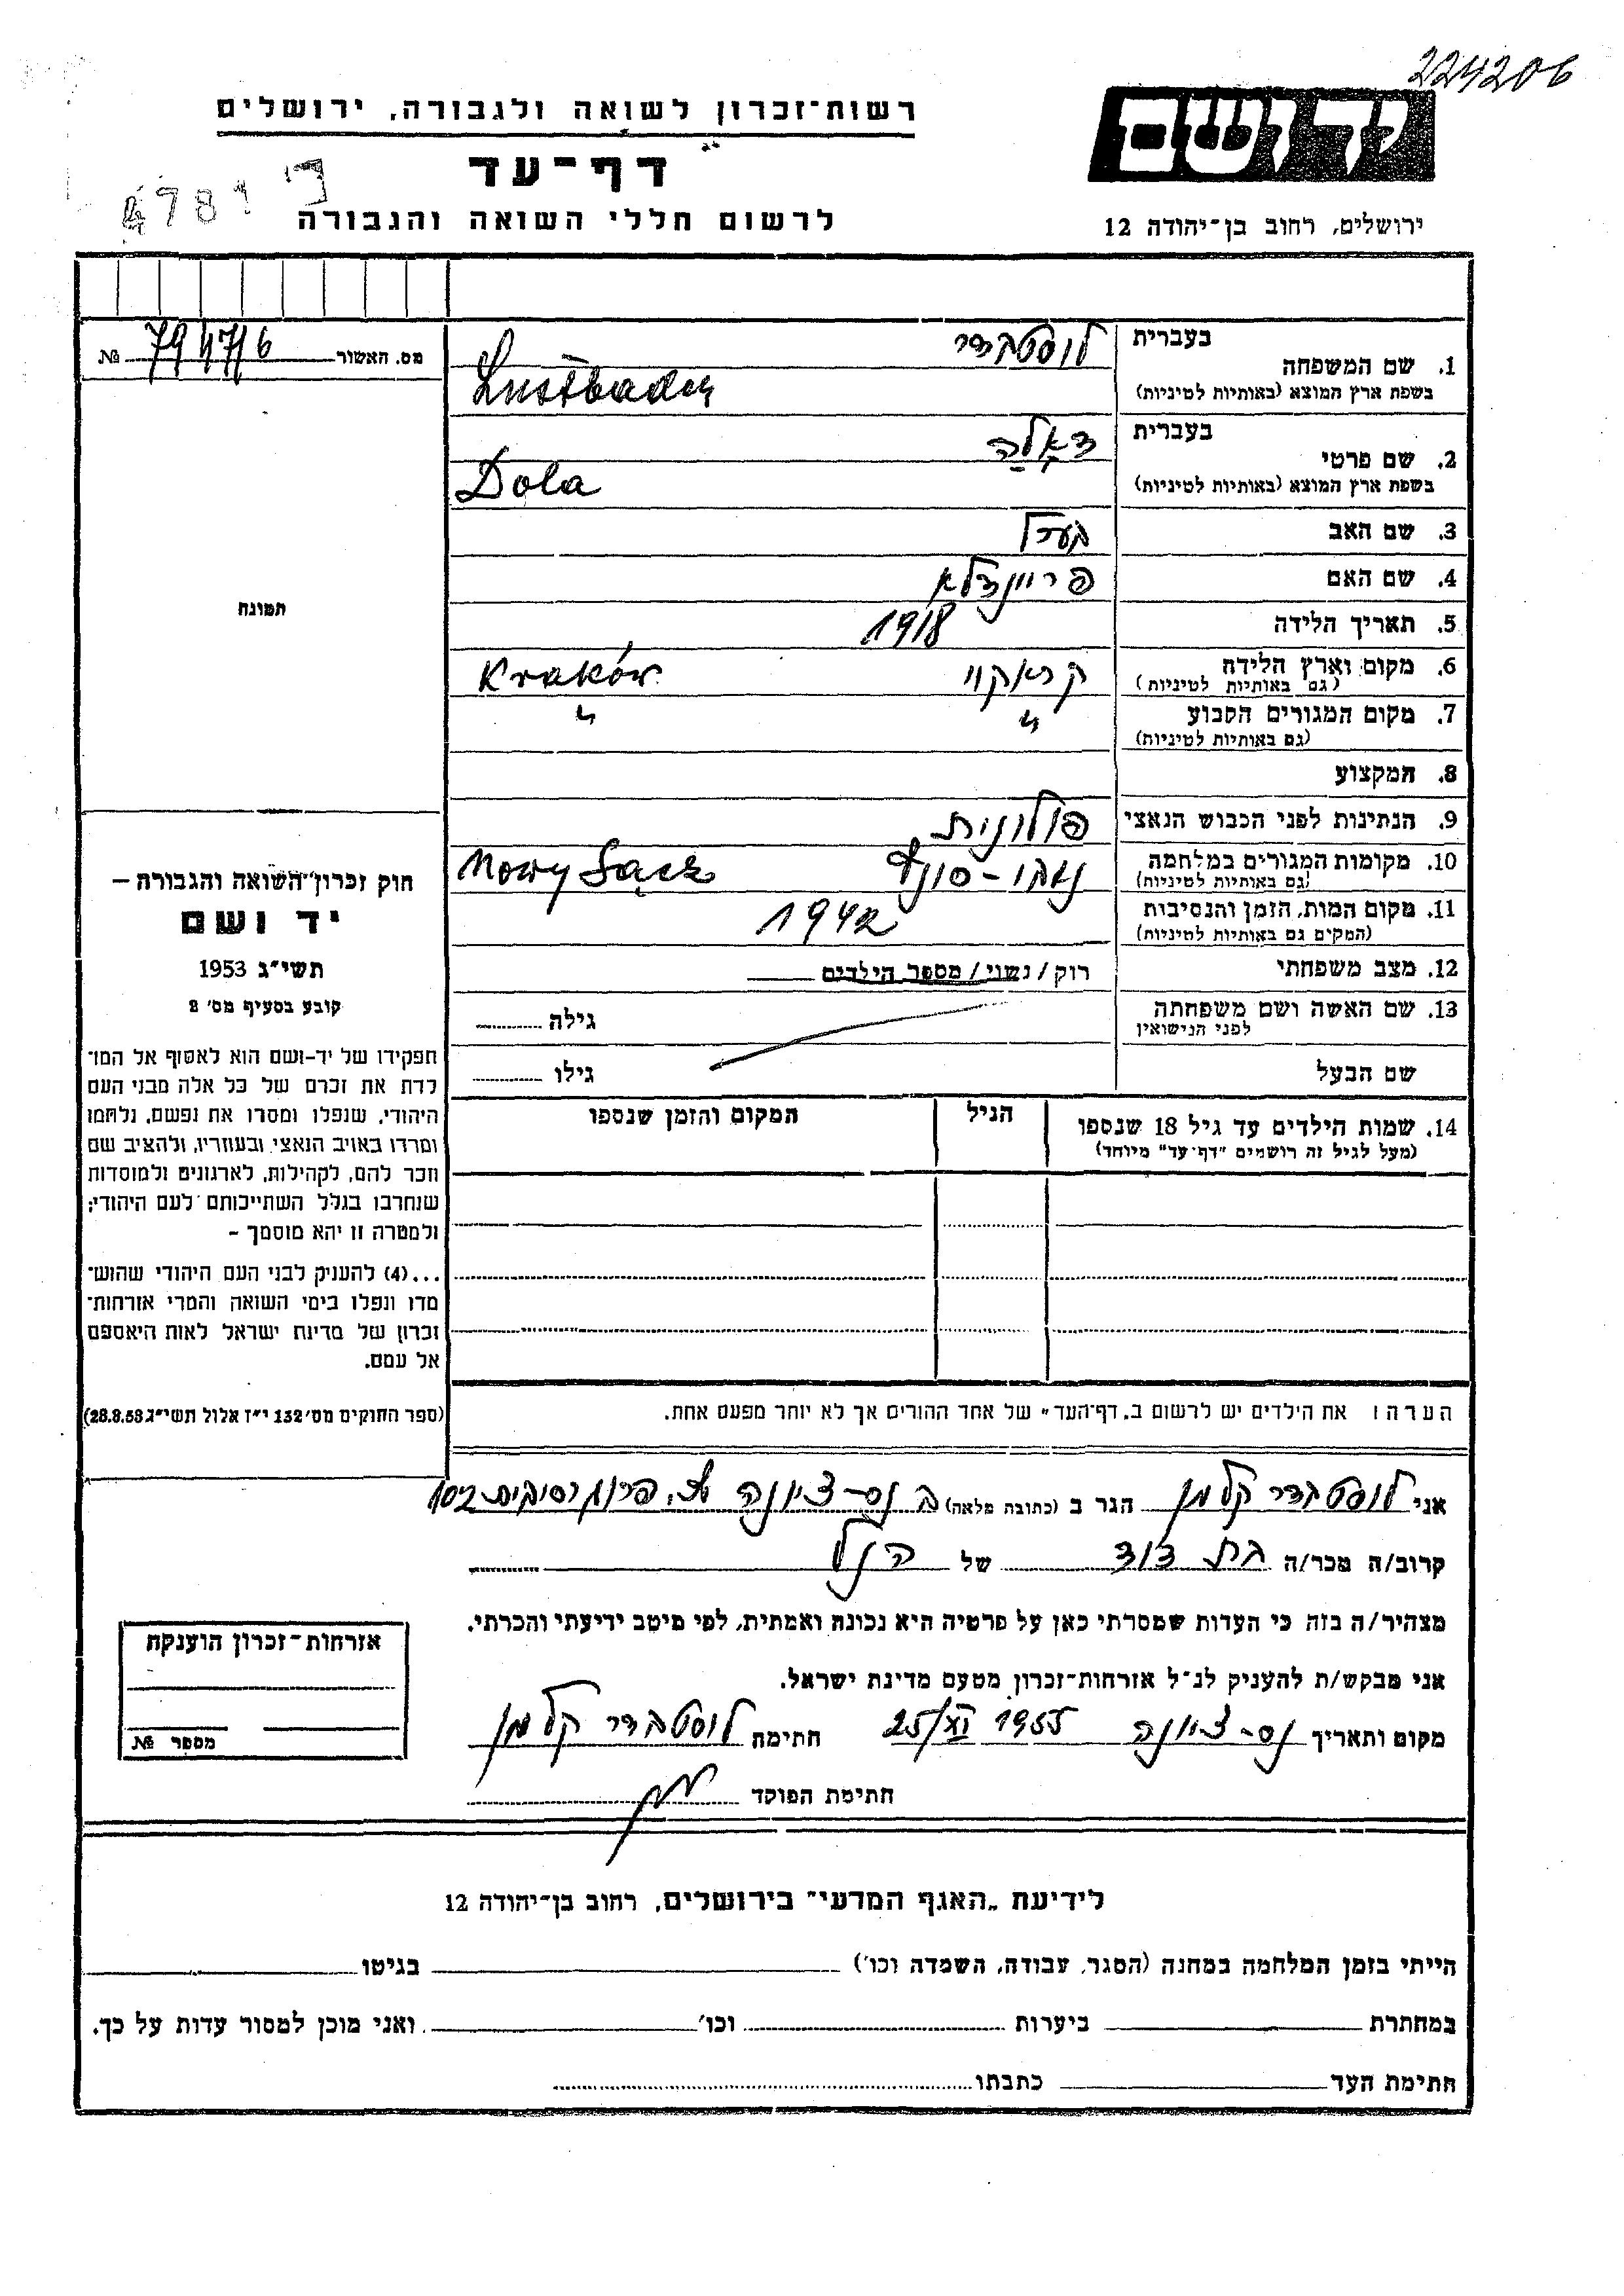 224206
יד ושם
רשות־זכרון לשואה ולגבורה, ירושלים
דף־עד
לרשום חללי השואה והגבורה
ירושלים, רחוב בן־יהודה 12
4781
מס. האשור № 79476
1. שם המשפחה בעברית לוסטבדר
בשפת ארץ המוצא (באותיות לטיניות) Lustbader
2. שם פרטי בעברית דאלה
בשפת ארץ המוצא (באותיות לטיניות) Dola
3. שם האב
4. שם האם פריינדלא
5. תאריך הלידה 1918
6. מקום וארץ הלידה קראקוי Kraków
(גם באותיות לטיניות)
7. מקום המגורים הקבוע " "
(גם באותיות לטיניות)
8. המקצוע
9. הנתינות לפני הכבוש הנאצי פולונית
10. מקומות המגורים במלחמה Nowy Sącz
(גם באותיות לטיניות)
11. מקום המות, הזמן והנסיבות 1942
(המקום גם באותיות לטיניות)
12. מצב משפחתי רוק / נשוי / מספר הילדים
13. שם האשה ושם משפחתה גילה
לפני הנישואין
שם הבעל גילו
14. שמות הילדים עד גיל 18 שנספו הגיל המקום והזמן שנספו
(מעל לגיל זה רושמים "דף־עד" מיוחד)
הערה: את הילדים יש לרשום ב„דף־העד" של אחד ההורים אך לא יותר מפעם אחת.
תמונה
חוק זכרון השואה והגבורה –
יד ושם
תשי"ג 1953
קובע בסעיף מס' 2
תפקידו של יד-ושם הוא לאסוף אל המו־
לדת את זכרם של כל אלה מבני העם
היהודי, שנפלו ומסרו את נפשם, נלחמו
ומרדו באויב הנאצי ובעוזריו, ולהציב שם
וזכר להם, לקהילות, לארגונים ולמוסדות
שנחרבו בגלל השתייכותם לעם היהודי;
ולמטרה זו יהא מוסמך –
...(4) להעניק לבני העם היהודי שהוש־
מדו ונפלו בימי השואה והמרי אזרחות־
זכרון של מדינת ישראל לאות היאספם
אל עמם.
(ספר החוקים מס' 132 י"ז אלול תשי"ג 28.8.53)
אני לוסטבדר קלמן הגר ב (כתובת מלאה) ב נס-ציונה 102
קרוב/ה מכר/ה בת דוד של הנ"ל
מצהיר/ה בזה כי העדות שמסרתי כאן על פרטיה היא נכונה ואמתית, לפי מיטב ידיעתי והכרתי.
אני מבקש/ת להעניק לנ"ל אזרחות־זכרון מטעם מדינת ישראל.
מקום ותאריך נס-ציונה 1955 חתימה לוסטבדר קלמן
חתימת הפוקד
אזרחות־זכרון הוענקה
מספר №
לידיעת „האגף המדעי" בירושלים, רחוב בן־יהודה 12
הייתי בזמן המלחמה במחנה (הסגר, עבודה, השמדה וכו') בגיטו
במחתרת ביערות וכו' ואני מוכן למסור עדות על כך.
חתימת העד כתבתו